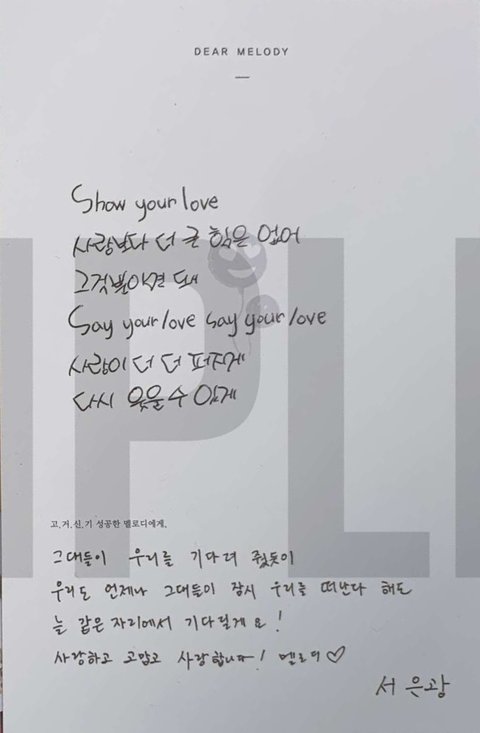 DEAR MELODY
Show your love
사랑보다 더 큰 힘은 없어
그것뿐이면 돼
Say your love say your love
사랑이 더 더 퍼지게
다시 웃을 수 있게
고.거.신.기 성공한 멜로디에게.
그대들이 우리를 기다려 줬듯이
우리도 언제나 그대들이 잠시 우리를 떠난다 해도
늘 같은 자리에서 기다릴게요!
사랑하고 고맙고 사랑합니다! 멜로디♡
서은광